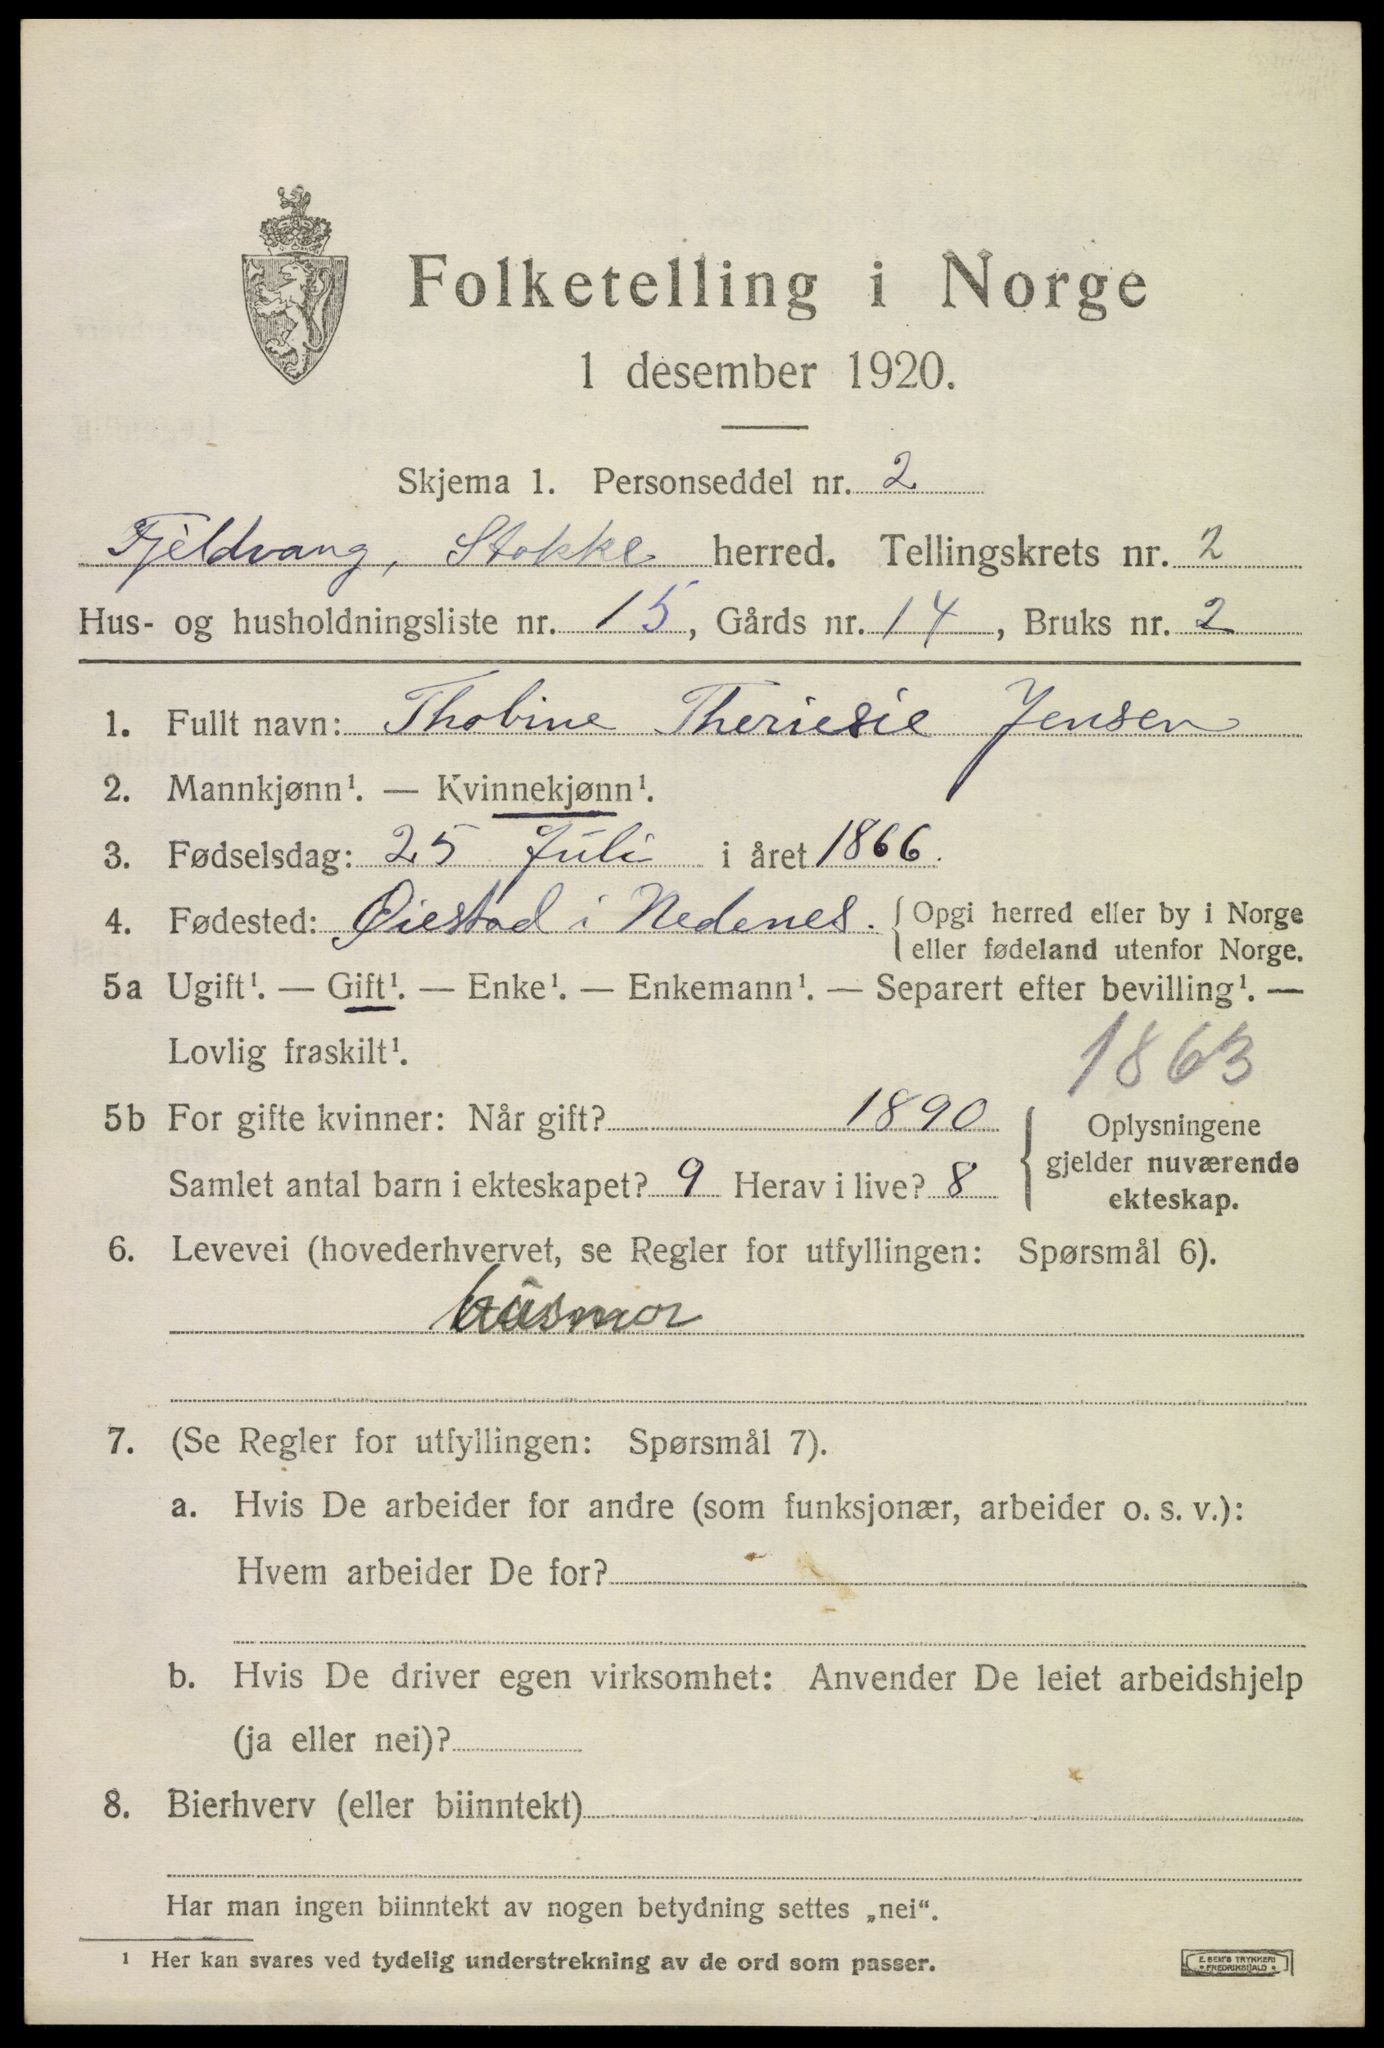 Folketelling i Norge
1 desember 1920.
Skjema 1. Personseddel nr. 2
Fjeldvang, Stokke herred. Tellingskrets nr. 2
Hus- og husholdningsliste nr. 15, Gårds nr. 14, Bruks nr. 2
1. Fullt navn: Thobine Theriesie Jensen
2. Mannkjønn¹. — Kvinnekjønn¹.
3. Fødselsdag: 25 Juli i året 1866.
4. Fødested: Øiestad i Nedenes. { Opgi herred eller by i Norge
eller fødeland utenfor Norge.
5a Ugift¹. — Gift¹. — Enke¹. — Enkemann¹. — Separert efter bevilling¹. —
Lovlig fraskilt¹.
1863
5b For gifte kvinner: Når gift? 1890
Samlet antal barn i ekteskapet? 9 Herav i live? 8
Oplysningene
gjelder nuværende
ekteskap.
6. Levevei (hovederhvervet, se Regler for utfyllingen: Spørsmål 6).
husmor
7. (Se Regler for utfyllingen: Spørsmål 7).
a. Hvis De arbeider for andre (som funksjonær, arbeider o. s. v.):
Hvem arbeider De for?
b. Hvis De driver egen virksomhet: Anvender De leiet arbeidshjelp
(ja eller nei)?
8. Bierhverv (eller biinntekt)
Har man ingen biinntekt av nogen betydning settes „nei“.
¹ Her kan svares ved tydelig understrekning av de ord som passer.
E. SEM'S TRYKKERI
• FREDRIKSHALD •